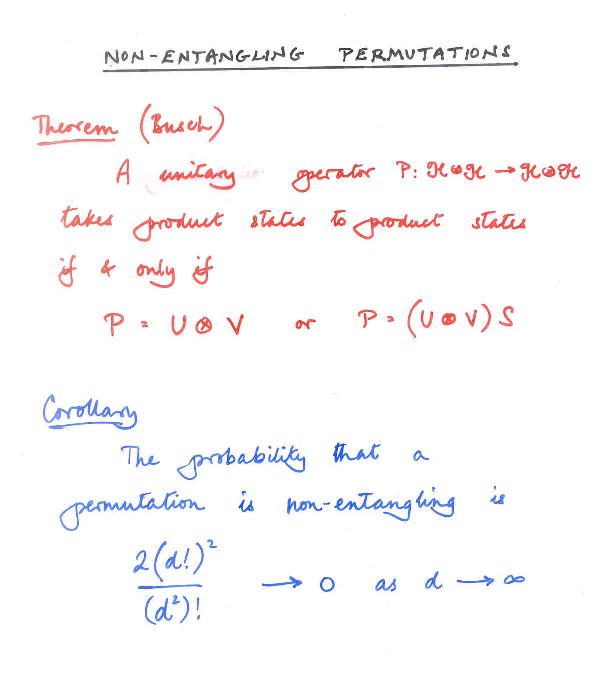 NON-ENTANGLING PERMUTATIONS
Theorem (Busch)
A unitary operator P: ℋ⊗ℋ → ℋ⊗ℋ
takes product states to product states
if & only if
P = U ⊗ V or P = (U ⊗ V) S
Corollary
The probability that a
permutation is non-entangling is
2(d!)² / (d²)! → 0 as d → ∞